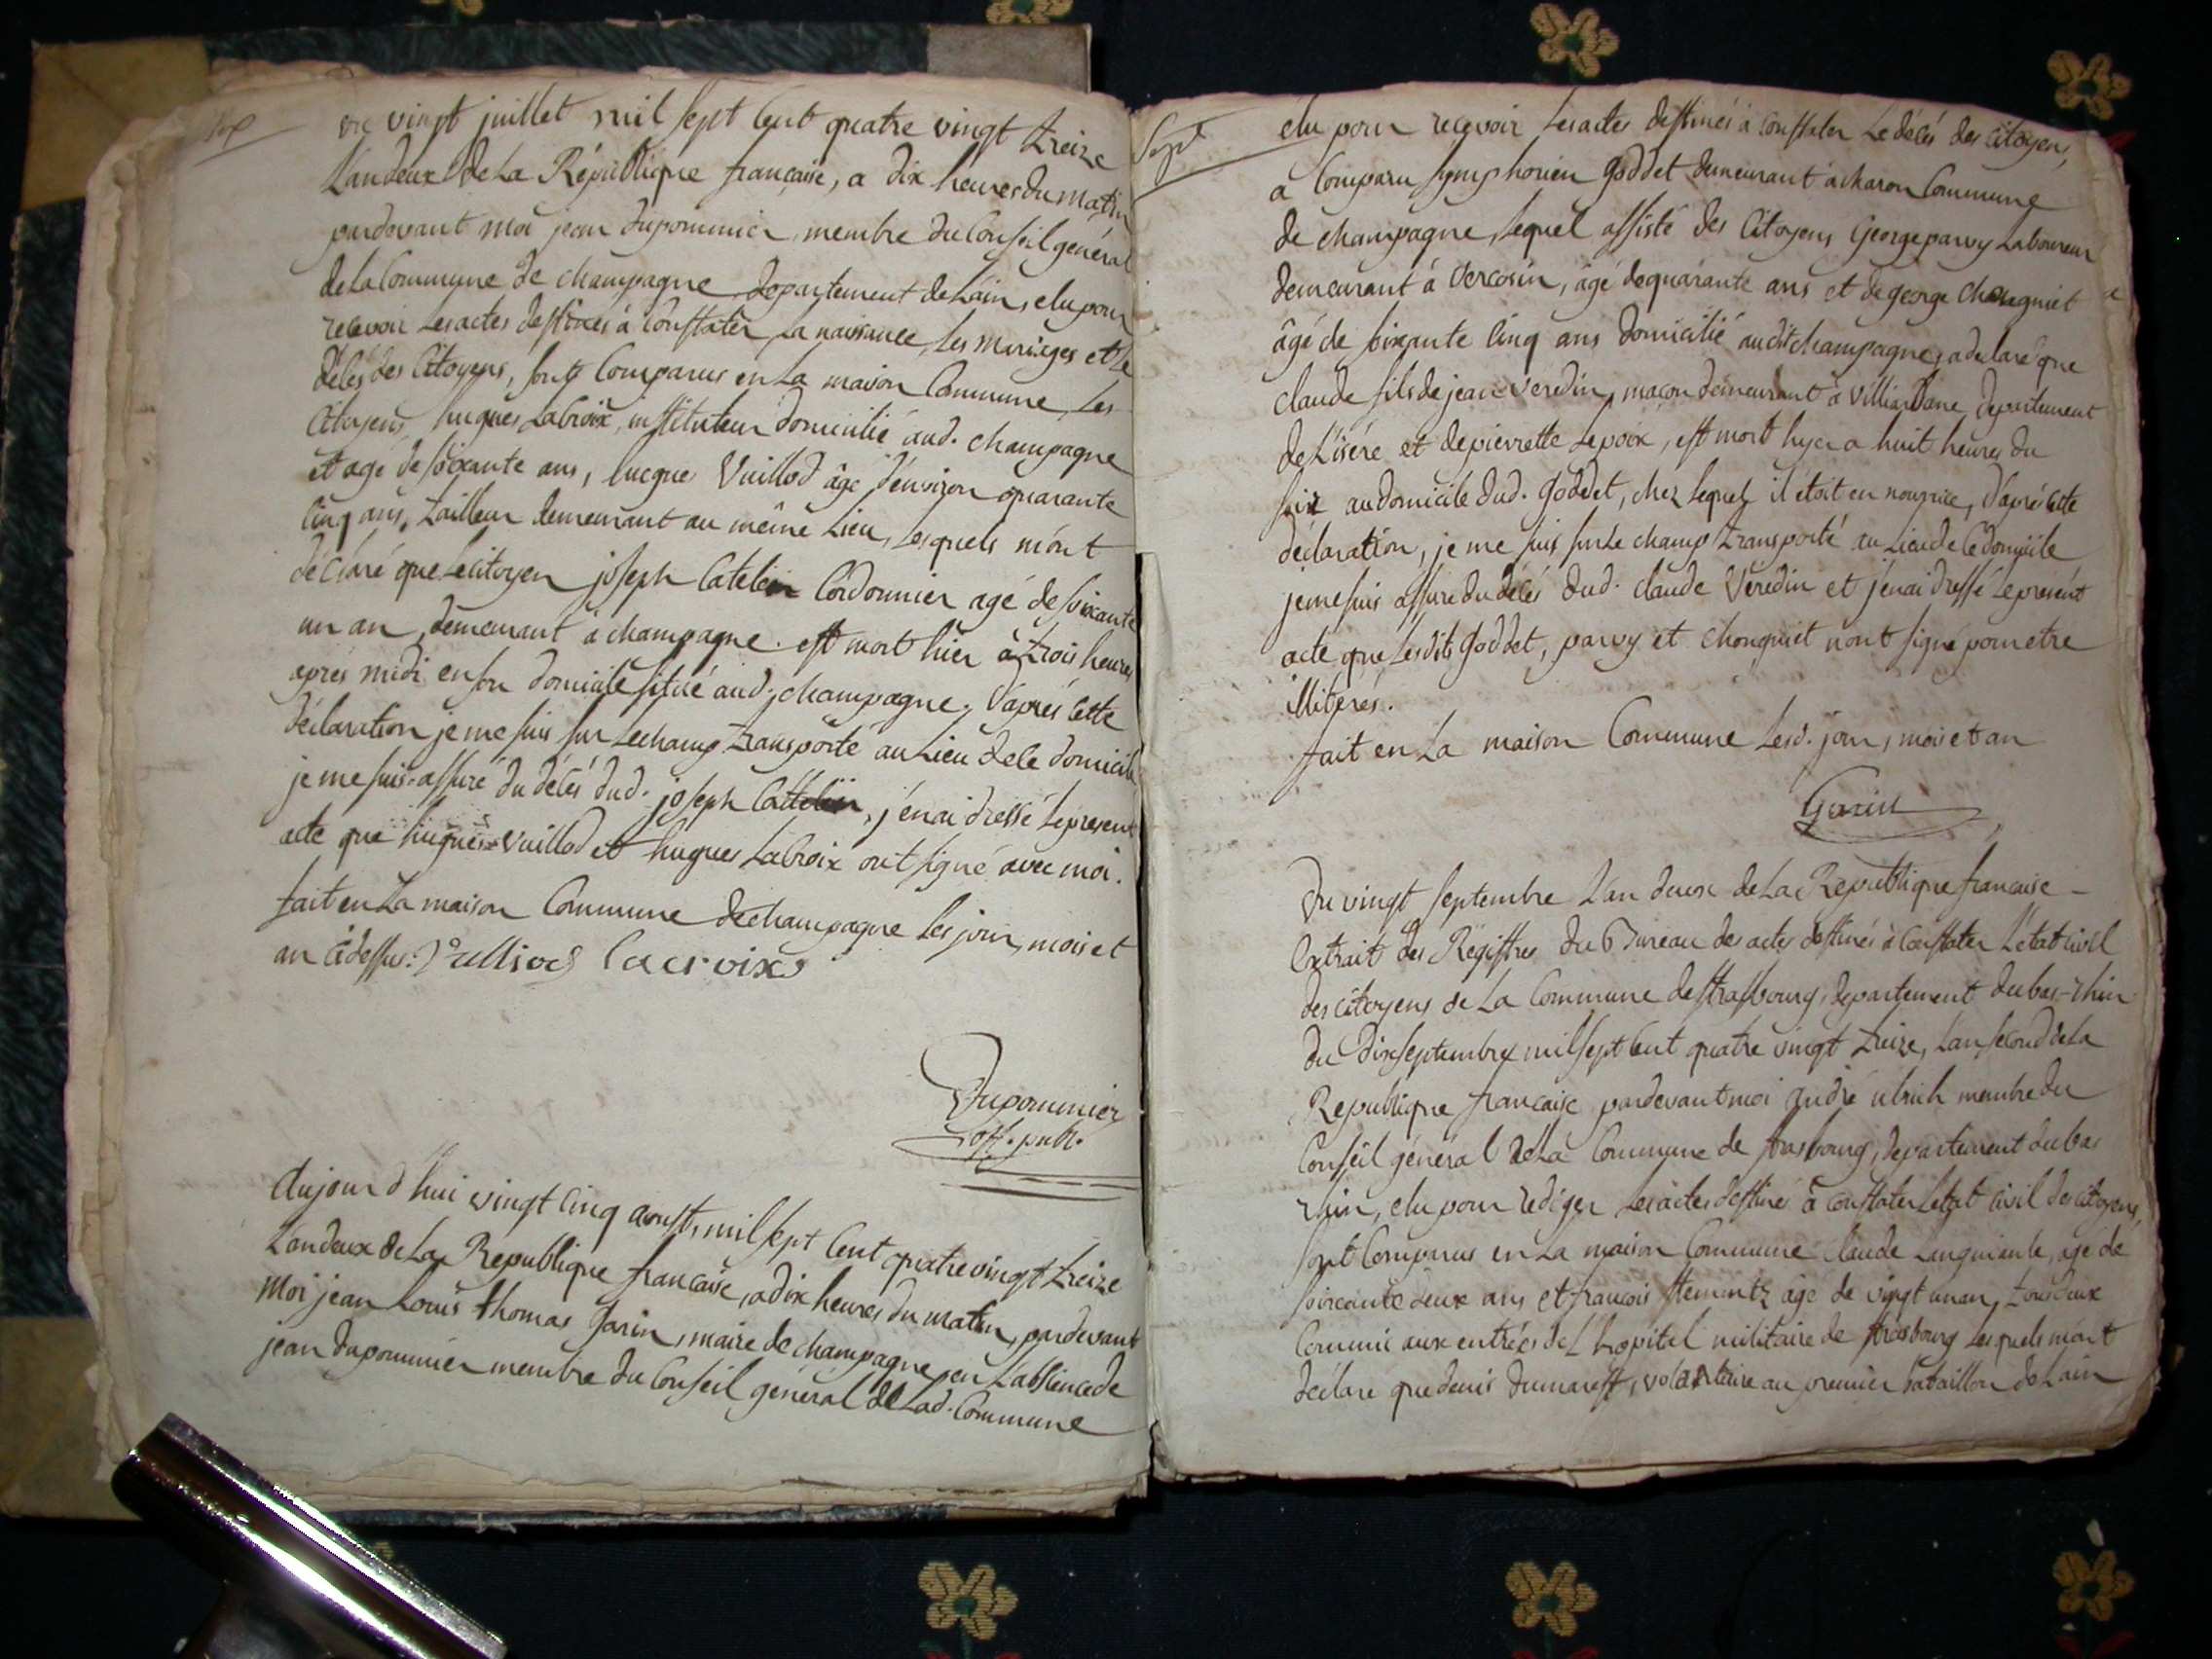 six
du vingt juillet mil sept cent quatre vingt treize
L'an deux de La République française, a dix heures du matin
pardevant moi jean dupommier, membre du Conseil général
de La Commune de champagne departement de L'ain, elu pour
recevoir Les actes destinés à constater La naissance, Les mariages et Le
décés des Citoyens, sont Comparus en La maison Commune, Les
Citoyens hugues Lacroix, instituteur domicilié aud. champagne
et agé de soixante ans, hugue Vuillod âgé d'environ quarante
Cinq ans, tailleur demeurant au même Lieu, Lesquels m'ont
déclaré que Le Citoyen joseph Catelin Cordonnier agé de soixante
un an, demeurant à champagne. est mort hier à trois heures
après midi en son domicile situé aud. champagne, d'après Cette
déclaration je me suis sur Le champ transporté au Lieu de Ce domicile
je me suis assuré du décés dud. joseph Catelin, j'en ai dressé Le present
acte que hugues Vuillod et hugues LaCroix ont signé avec moi.
fait en La maison Commune de champagne Les jour, mois et
an cidessus. Vulliod Lacroix
Dupommier
off. publ.
Aujourd'hui vingt Cinq aoust, mil sept Cent quatre vingt treize
L'an deux de La Republique francaise, a dix heures du matin, pardevant
moi jean Louis thomas Garin, maire de champagne, en L'absence de
jean dupommier membre du Conseil général de Lad. Commune
Sept
elu pour recevoir Les actes destinés à Constater Le décés des Citoyens,
a Comparu symphorien Goddet demeurant à charon Commune
de champagne, Lequel assisté des Citoyens George parvy Laboureur
demeurant à Vercosin, âgé de quarante ans et de george chongniet
âgé de soixante Cinq ans domicilié audit champagne, a declaré que
claude fils de jean veredin, maçon demeurant à Villiarbane, departement
de L'isère et de pierrette Lepoix, est mort hyer a huit heures du
soir au domicile dud. Goddet, chez Lequel il étoit en nourrice, d'après Cette
déclaration, je me suis sur Le champ transporté au Lieu de Ce domicile
je me suis assuré du décés dud. claude Véredin et j'en ai dressé Le présent
acte que Lesdits Goddet, parvy et chongniet n'ont signé pour etre
illitérés.
fait en La maison Commune Lesd. jour, mois et an
Garin
Du vingt septembre L'an deux de La Republique francaise -
Extrait des Registres du Bureau des actes destinés à Constater L'état civil
des citoyens de La Commune de strasbourg, departement du bas-rhin
du dix septembre mil sept Cent quatre vingt treize, L'an second de La
Republique francaise pardevant moi andré ulrich membre du
Conseil général de La Commune de strasbourg, departement du bas
rhin, elu pour rediger Les actes destiné à constater L'etat civil des citoyens,
sont Comparus en La maison Commune Claude Languiante, agé de
soixante deux ans et francois stemintz agé de vingt un an, tous deux
Commis aux entrées de L'hopital militaire de strasbourg Lesquels m'ont
déclare que denis dumarest, volontaire au premier bataillon de L'ain